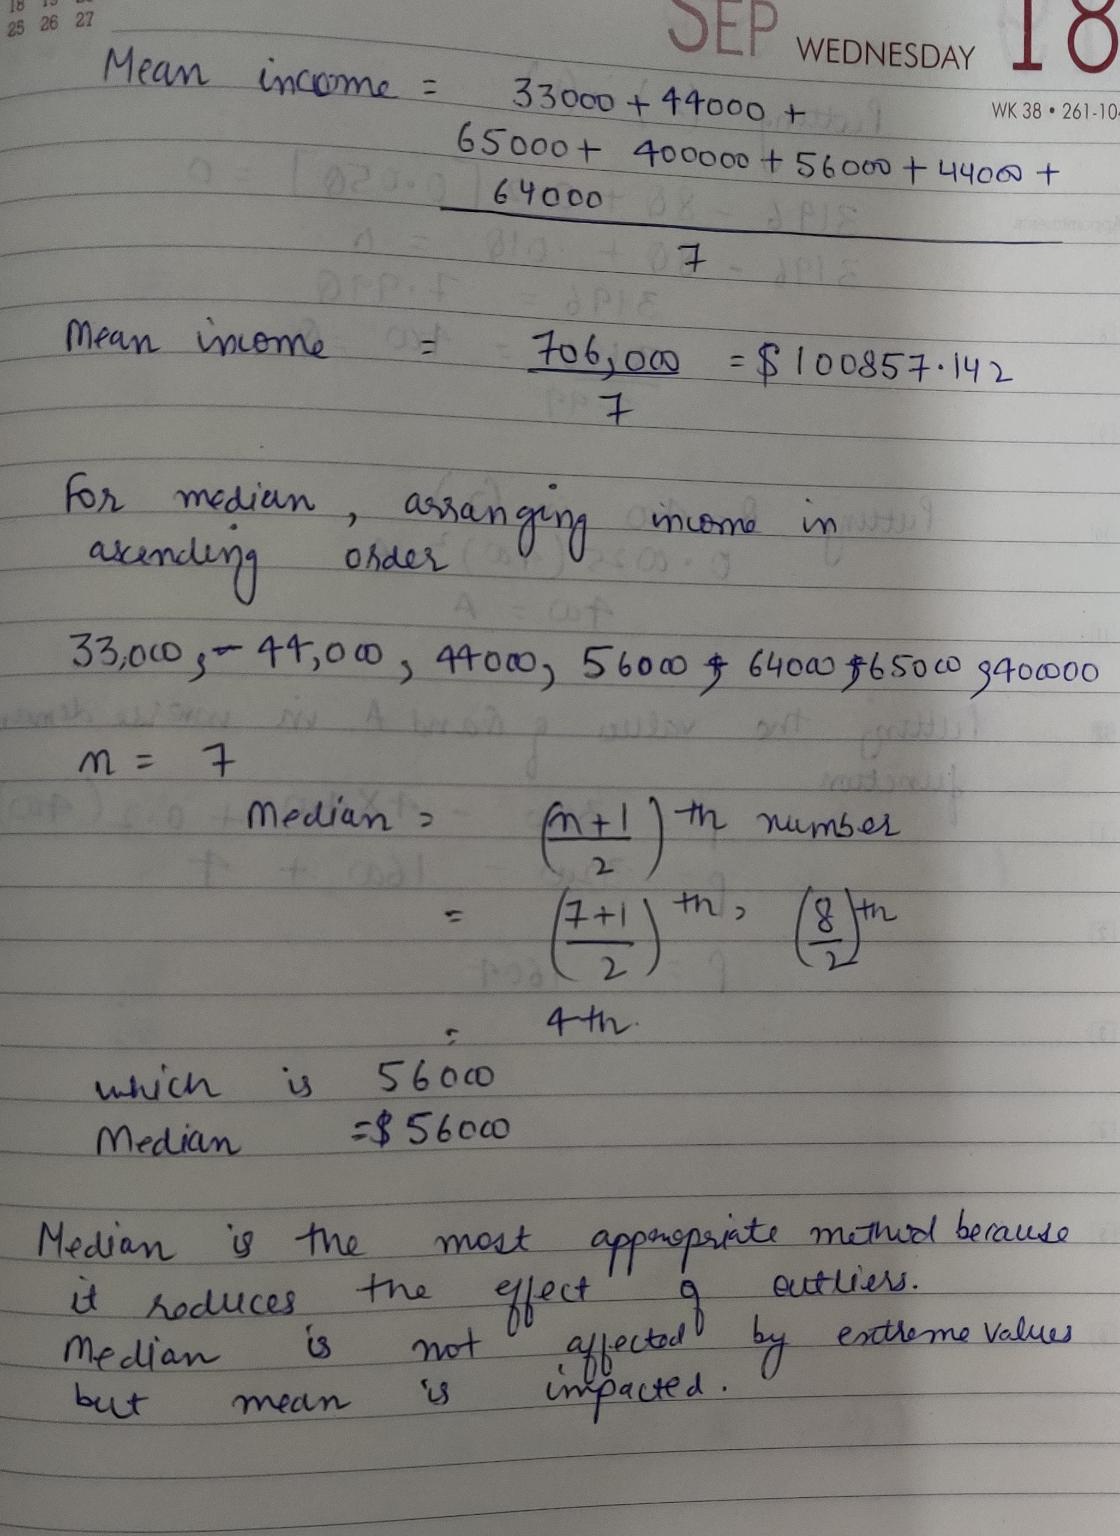 25 26 27
SEP WEDNESDAY 18
WK 38 • 261-10
Mean income = 33000 + 44000 +
65000 + 400000 + 56000 + 44000 +
64000
7
Mean income = 706,000 = $ 100857.142
7
For median, arranging income in
ascending order
33,000, 44,000, 44000, 56000, 64000, 65000, 400000
n = 7
Median = (n+1 / 2) th number
= (7+1 / 2) th, (8 / 2) th
= 4th.
which is 56000
Median = $ 56000
Median is the most appropriate method because
it reduces the effect of outliers.
Median is not affected by extreme values
but mean is impacted.